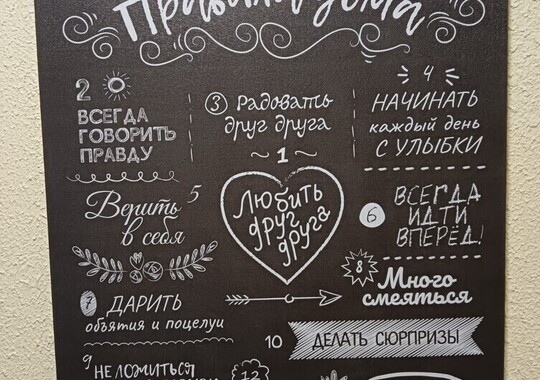 Правила дома
2
ВСЕГДА
ГОВОРИТЬ
ПРАВДУ
3 Радовать
друг друга
4
НАЧИНАТЬ
каждый день
С УЛЫБКИ
~ 1 ~
Любить
друг
друга
Верить 5
в себя
6
ВСЕГДА
ИДТИ
ВПЕРЁД!
7 ДАРИТЬ
объятия и поцелуи
8
Много
смеяться
9 НЕ ЛОЖИТЬСЯ
10 ДЕЛАТЬ СЮРПРИЗЫ
12